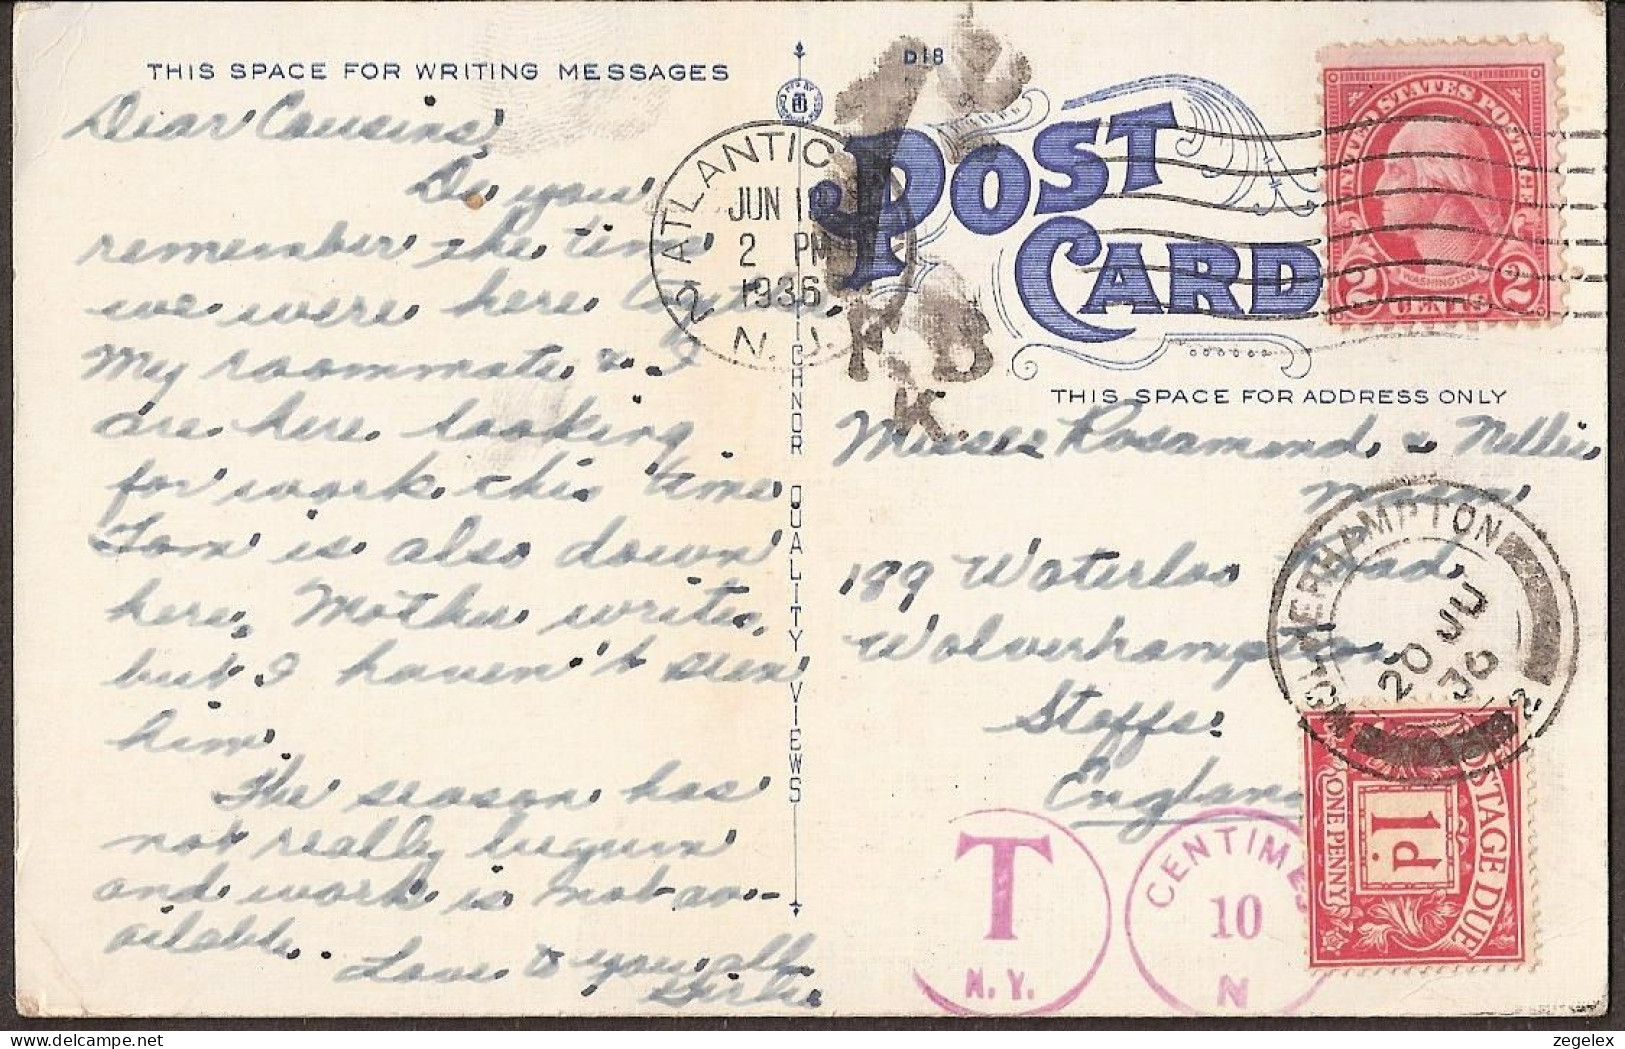 THIS SPACE FOR WRITING MESSAGES
Dear Cousins,
Do you
remember the time
we were here
My roommate & I
are here looking
for work this time
Tom is also down
here, Mother writes,
but I haven't seen
him.
The season has
not really begun
and work is not av-
ailable.
Love to you all
D18
POST
CARD
ATLANTIC
JUN
2 PM
1936
N.J.
K.
UNITED STATES POSTAGE
WASHINGTON
2 CENTS 2
THIS SPACE FOR ADDRESS ONLY
Misses Rosamond & Nellie
Mason
189 Waterloo Road,
Wolverhampton
Staffs.
England
WOLVERHAMPTON
20 JU
36
CHNOR QUALITY VIEWS
T
N.Y.
CENTIMES
10
N
POSTAGE DUE
1d
ONE PENNY
zegelex